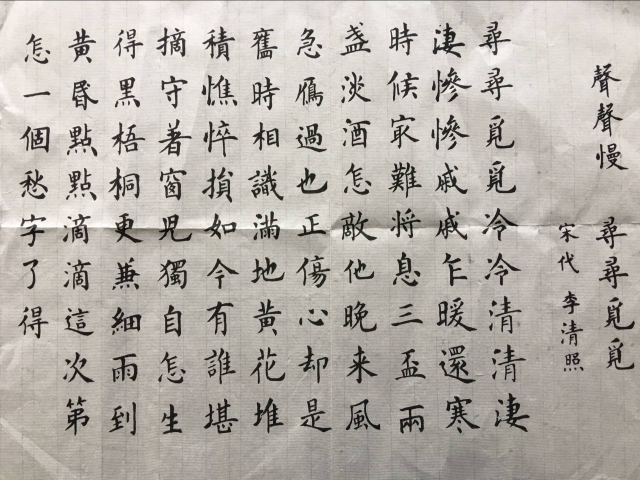 聲聲慢 尋尋覓覓
宋代 李清照
尋尋覓覓冷冷清清淒
淒慘慘戚戚乍暖還寒
時候㝡難將息三盃兩
盞淡酒怎敵他晚来風
急鴈過也正傷心却是
舊時相識滿地黃花堆
積憔悴損如今有誰堪
摘守著窗兒獨自怎生
得黑梧桐更兼細雨到
黃昏點點滴滴這次第
怎一個愁字了得